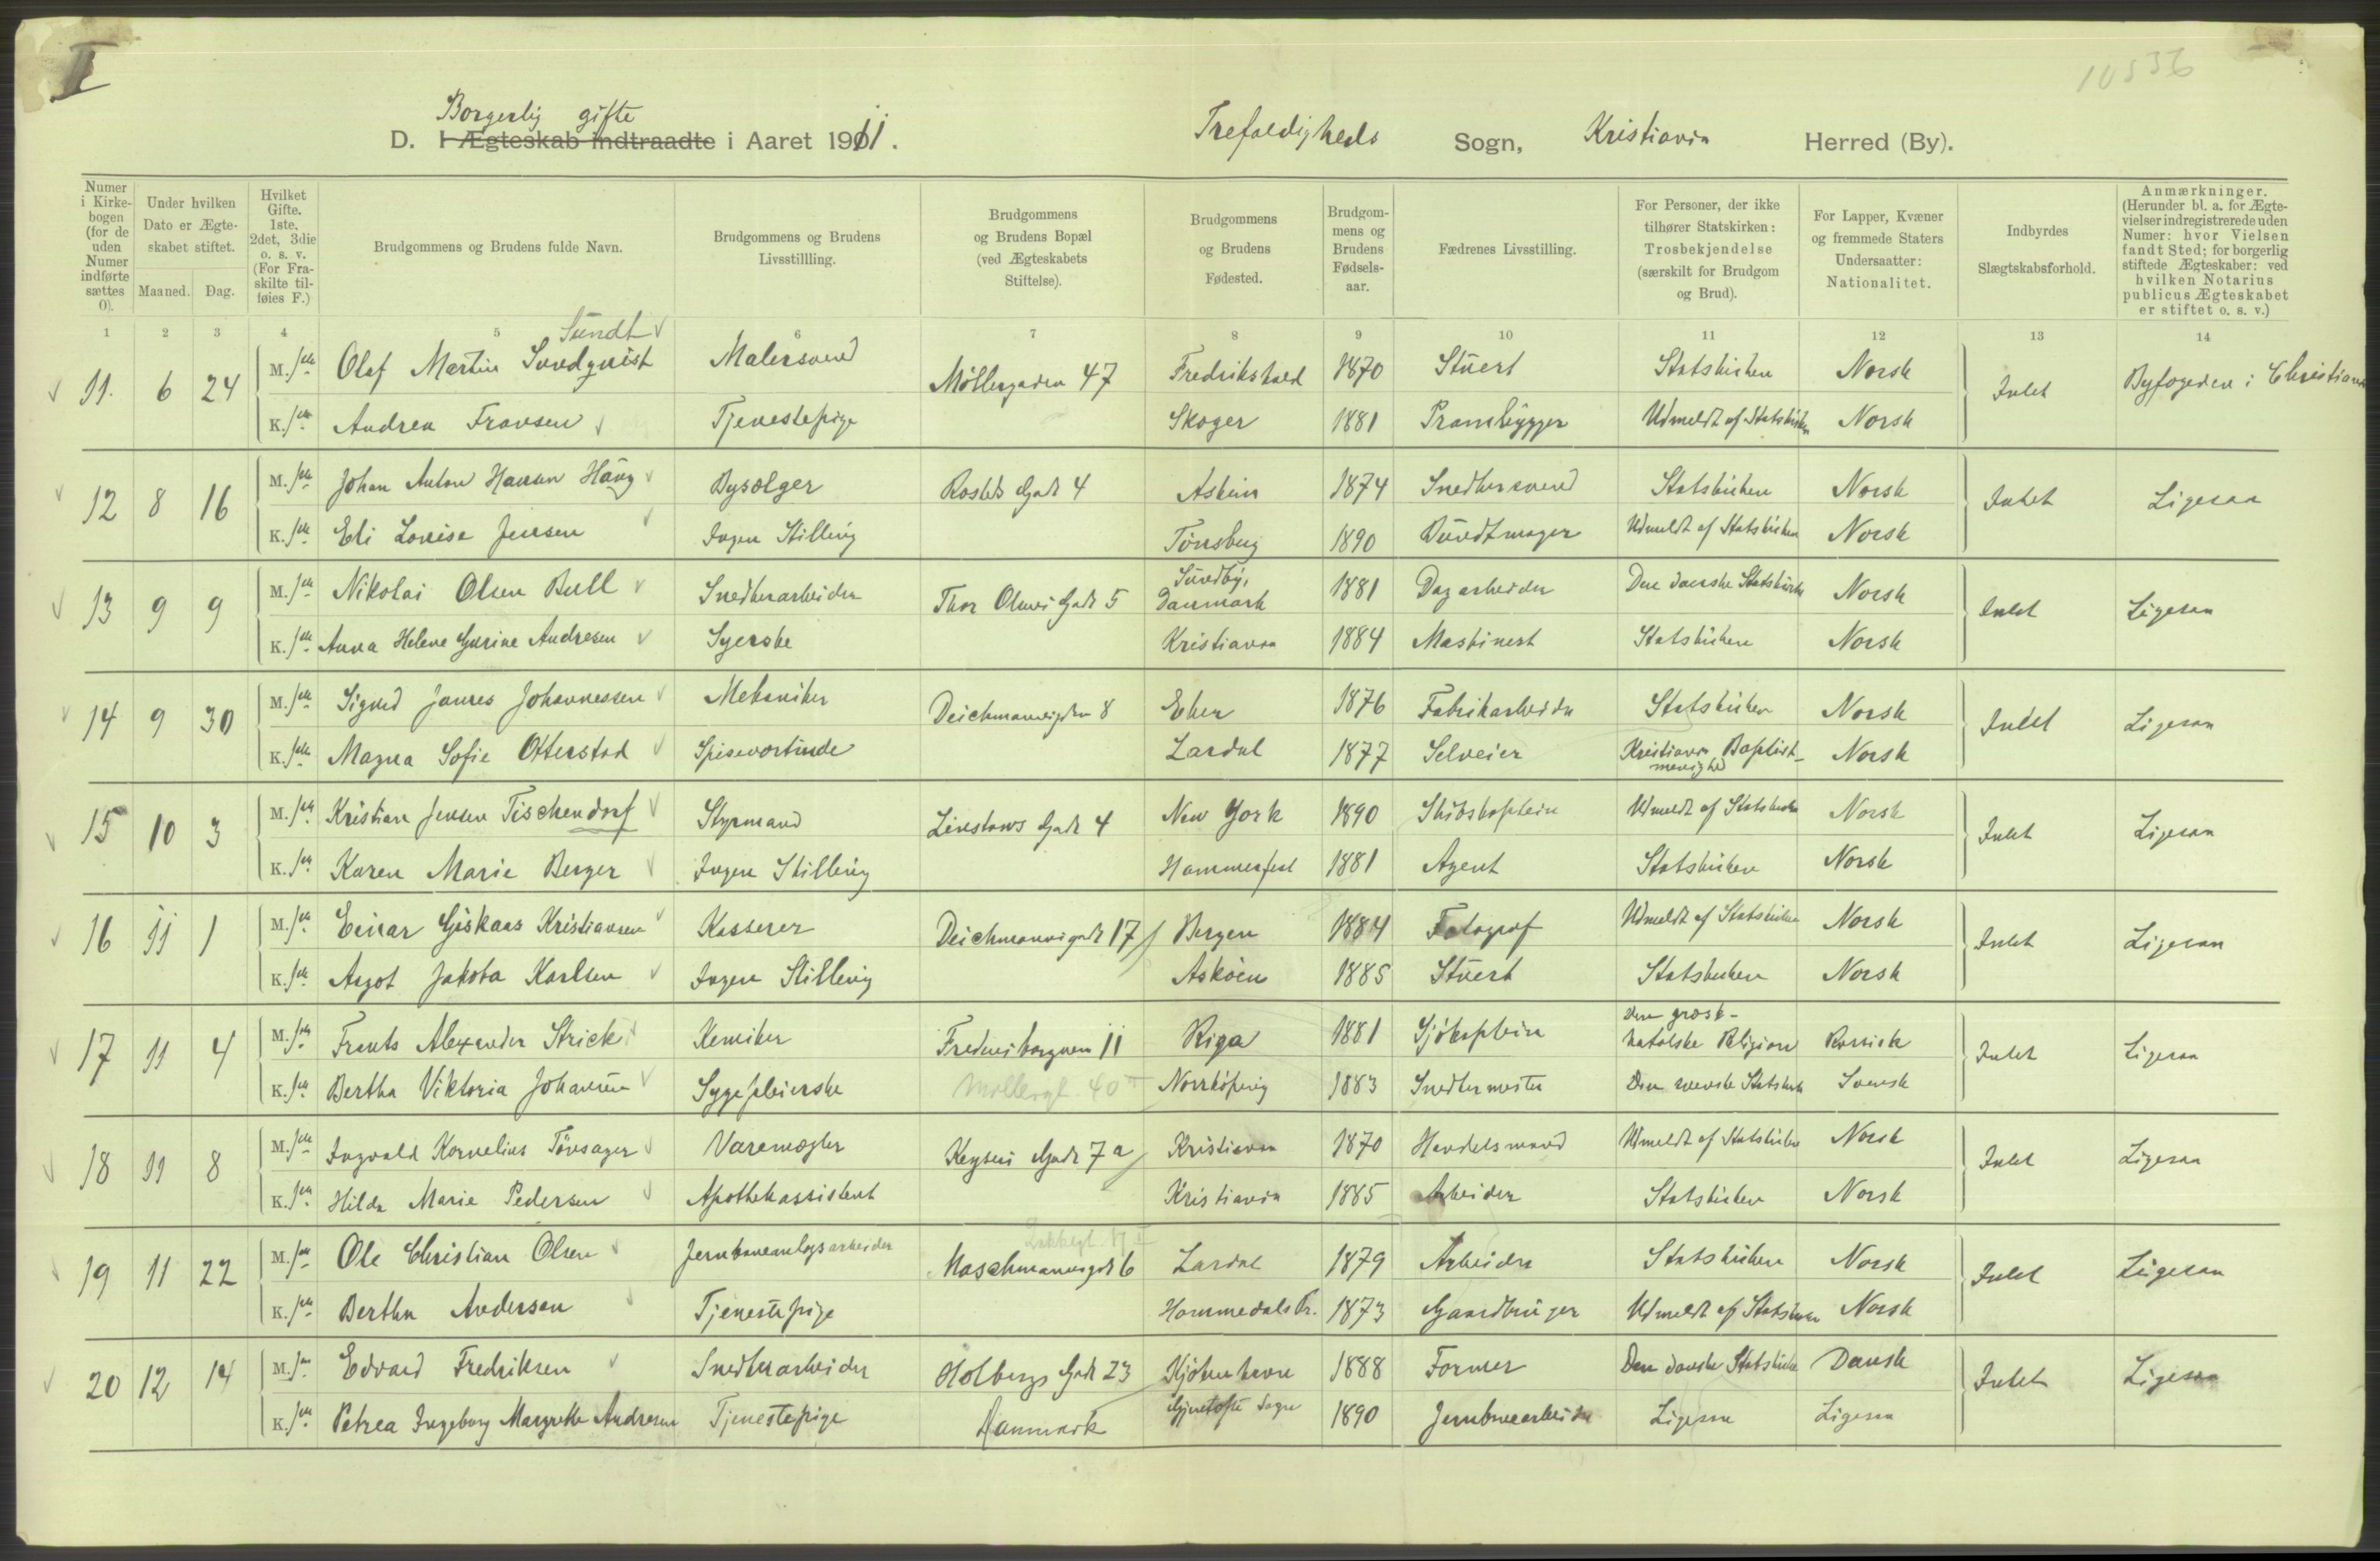 I
10536
Borgerlig gifte
D. I Ægteskab indtraadte i Aaret 1911. Trefoldigheds Sogn, Kristiania Herred (By).
Numer i Kirkebogen (for de uden Numer indførte sættes 0). Under hvilken Dato er Ægteskabet stiftet. Maaned. Dag. Hvilket Gifte. 1ste, 2det, 3die o. s. v. (For Fraskilte tilføies F.) Brudgommens og Brudens fulde Navn. Brudgommens og Brudens Livsstillling. Brudgommens og Brudens Bopæl (ved Ægteskabets Stiftelse). Brudgommens og Brudens Fødested. Brudgommens og Brudens Fødselsaar. Fædrenes Livsstilling. For Personer, der ikke tilhører Statskirken: Trosbekjendelse (særskilt for Brudgom og Brud). For Lapper, Kvæner og fremmede Staters Undersaatter: Nationalitet. Indbyrdes Slægtskabsforhold. Anmærkninger. (Herunder bl. a. for Ægtevielser indregistrerede uden Numer: hvor Vielsen fandt Sted; for borgerlig stiftede Ægteskaber: ved hvilken Notarius publicus Ægteskabet er stiftet o. s. v.)
1 2 3 4 5 6 7 8 9 10 11 12 13 14
Sundt
11. 6 24 M. 1ste Olaf Martin Sundquist Malersvend Møllergaden 47 Fredrikshald 1870 Stuert Statskirken Norsk Intet Byfogden i Christiania
K. 1ste Andrea Fransen Tjenestepige Skoger 1881 Prambygger Udmeldt af Statskirken Norsk
12 8 16 M. 1ste Johan Anton Hansen Haug Bysælger Rosteds Gade 4 Askim 1874 Snedkersvend Statskirken Norsk Intet Ligesaa
K. 1ste Eli Lovise Jensen Ingen Stilling Tønsberg 1890 Bundtmager Udmeldt af Statskirken Norsk
13 9 9 M. 1ste Nikolai Olsen Bull Snedkerarbeider Thor Olsens Gade 5 Sundby, Danmark 1881 Dagarbeider Den danske Statskirke Norsk Intet Ligesaa
K. 1ste Anna Helene Gurine Andresen Syerske Kristiania 1884 Maskinist Statskirken Norsk
14 9 30 M. 1ste Sigurd James Johannessen Mekaniker Deichmansgaden 8 Eker 1876 Fabrikarbeider Statskirken Norsk Intet Ligesaa
K. 1ste Magna Sofie Otterstad Spisevertinde Lardal 1877 Selveier Kristiania Baptistmenighed Norsk
15 10 3 M. 1ste Kristian Jensen Tischendorf Styrmand Linstows Gade 4 New York 1890 Skibskaptein Udmeldt af Statskirken Norsk Intet Ligesaa
K. 1ste Karen Marie Berger Ingen Stilling Hammerfest 1881 Agent Statskirken Norsk
16 11 1 M. 1ste Einar Giskaas Kristiansen Kasserer Deichmansgade 17 Bergen 1884 Fotograf Udmeldt af Statskirken Norsk Intet Ligesaa
K. 1ste Aagot Jakoba Karlsen Ingen Stilling Askøen 1885 Stuert Statskirken Norsk
17 11 4 M. 1ste Frants Alexander Strick Kemiker Fredensborgveien 11 Riga 1881 Sjökaptein Den græsk-katolske Religion Russisk Intet Ligesaa
K. 1ste Bertha Viktoria Johanson Sygepleierske Møllergt. 40 II Norrköping 1883 Snedkermester Den svenske Statskirke Svensk
18 11 8 M. 1ste Ingvald Kornelius Tønsager Varemægler Keysers Gade 7a Kristiania 1870 Handelsmand Udmeldt af Statskirken Norsk Intet Ligesaa
K. 1ste Hilda Marie Pedersen Apothekassistent Kristiania 1885 Arbeider Statskirken Norsk
19 11 22 M. 1ste Ole Christian Olsen Jernbaneanlægsarbeider Maschmannsgade 6 Lardal 1879 Arbeider Statskirken Norsk Intet Ligesaa
K. 1ste Bertha Andersen Tjenestepige Hommedals Pr. 1873 Gaardbruger Udmeldt af Statskirken Norsk
20 12 14 M. 1ste Edvard Fredriksen Snedkerarbeider Holbergs Gade 23 Kjøbenhavn 1888 Former Den danske Statskirke Dansk Intet Ligesaa
K. 1ste Petrea Ingeborg Margrethe Andresen Tjenestepige Danmark Gjentofte Sogn 1890 Jernbanearbeider Ligesaa Ligesaa